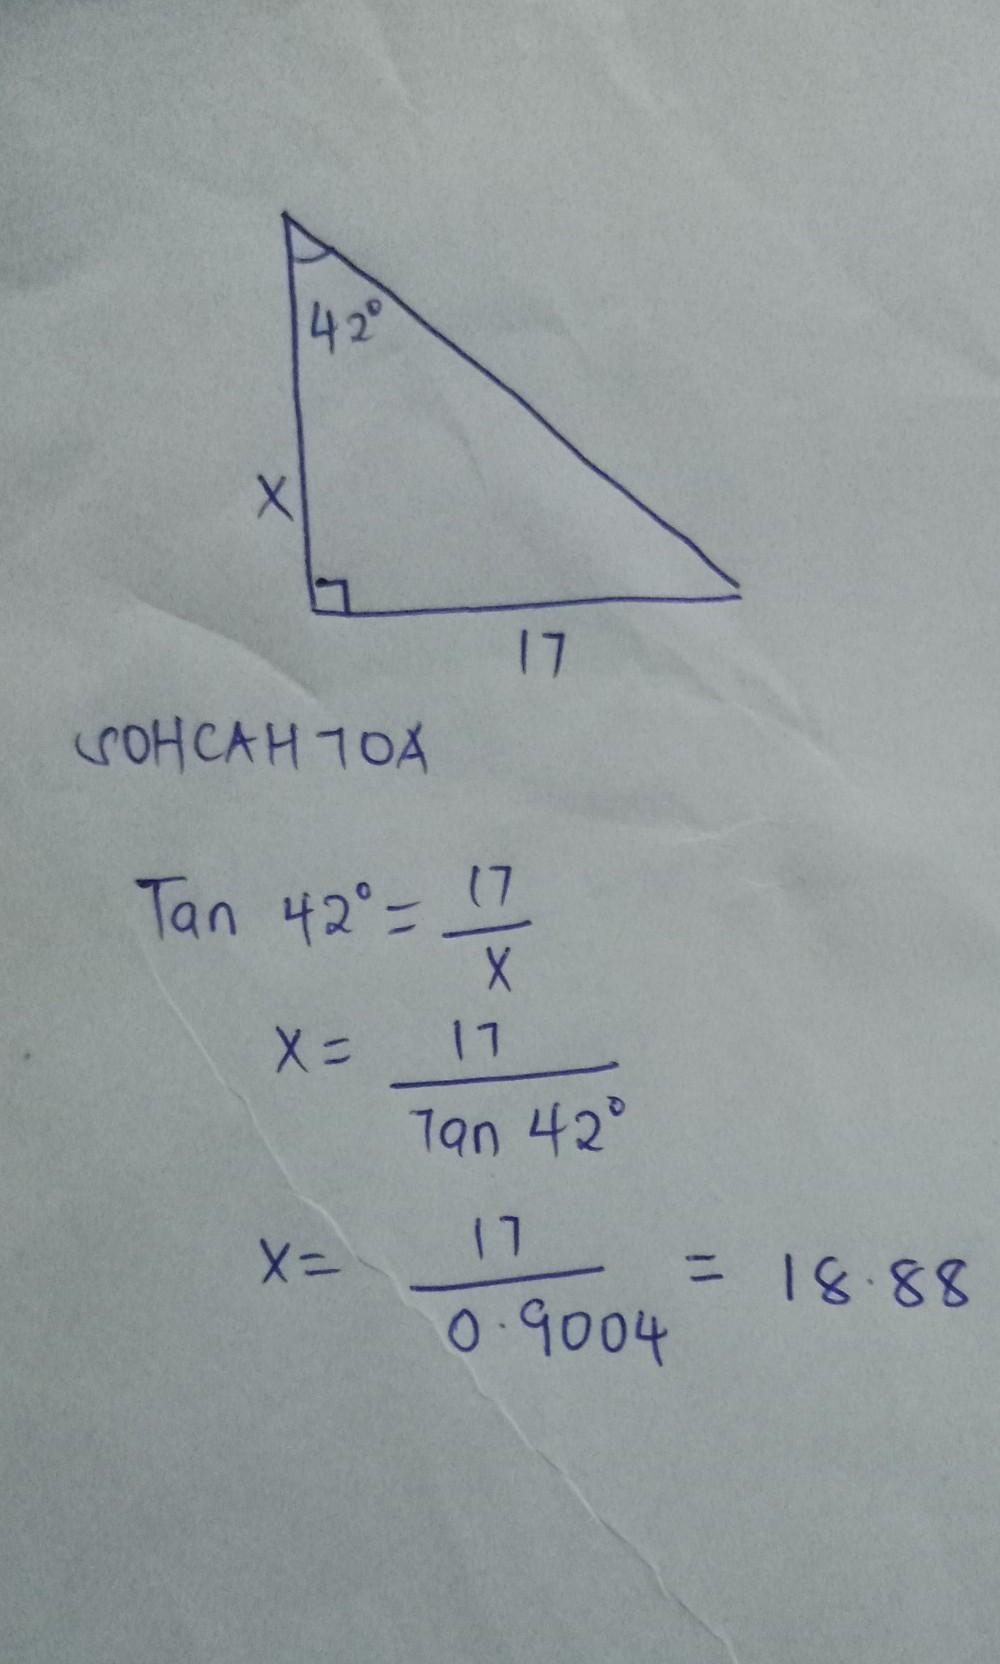 42°
X
17
SOHCAHTOA
Tan 42° = 17/X
X = 17/Tan 42°
X = 17/0.9004 = 18.88